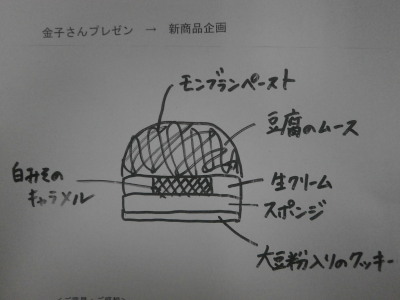 金子さんプレゼン → 新商品企画
モンブランペースト
豆腐のムース
白みその
キャラメル
生クリーム
スポンジ
大豆粉入りのクッキー